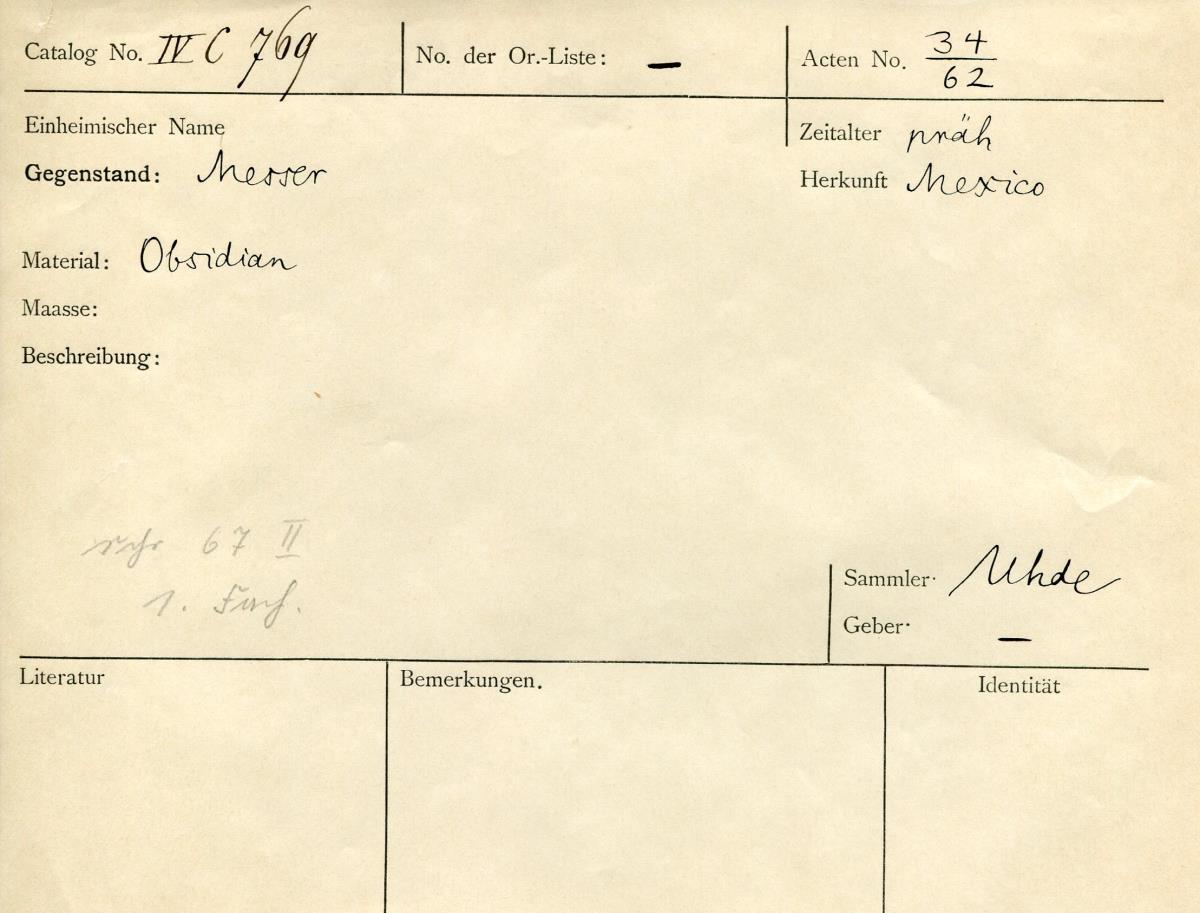 Catalog No. IV C 769 No. der Or.-Liste: — Acten No. 34/62
Einheimischer Name
Zeitalter präh
Gegenstand: Messer
Herkunft Mexico
Material: Obsidian
Maasse:
Beschreibung:
67 II
1. Fach.
Sammler· Uhde
Geber· —
Literatur Bemerkungen. Identität